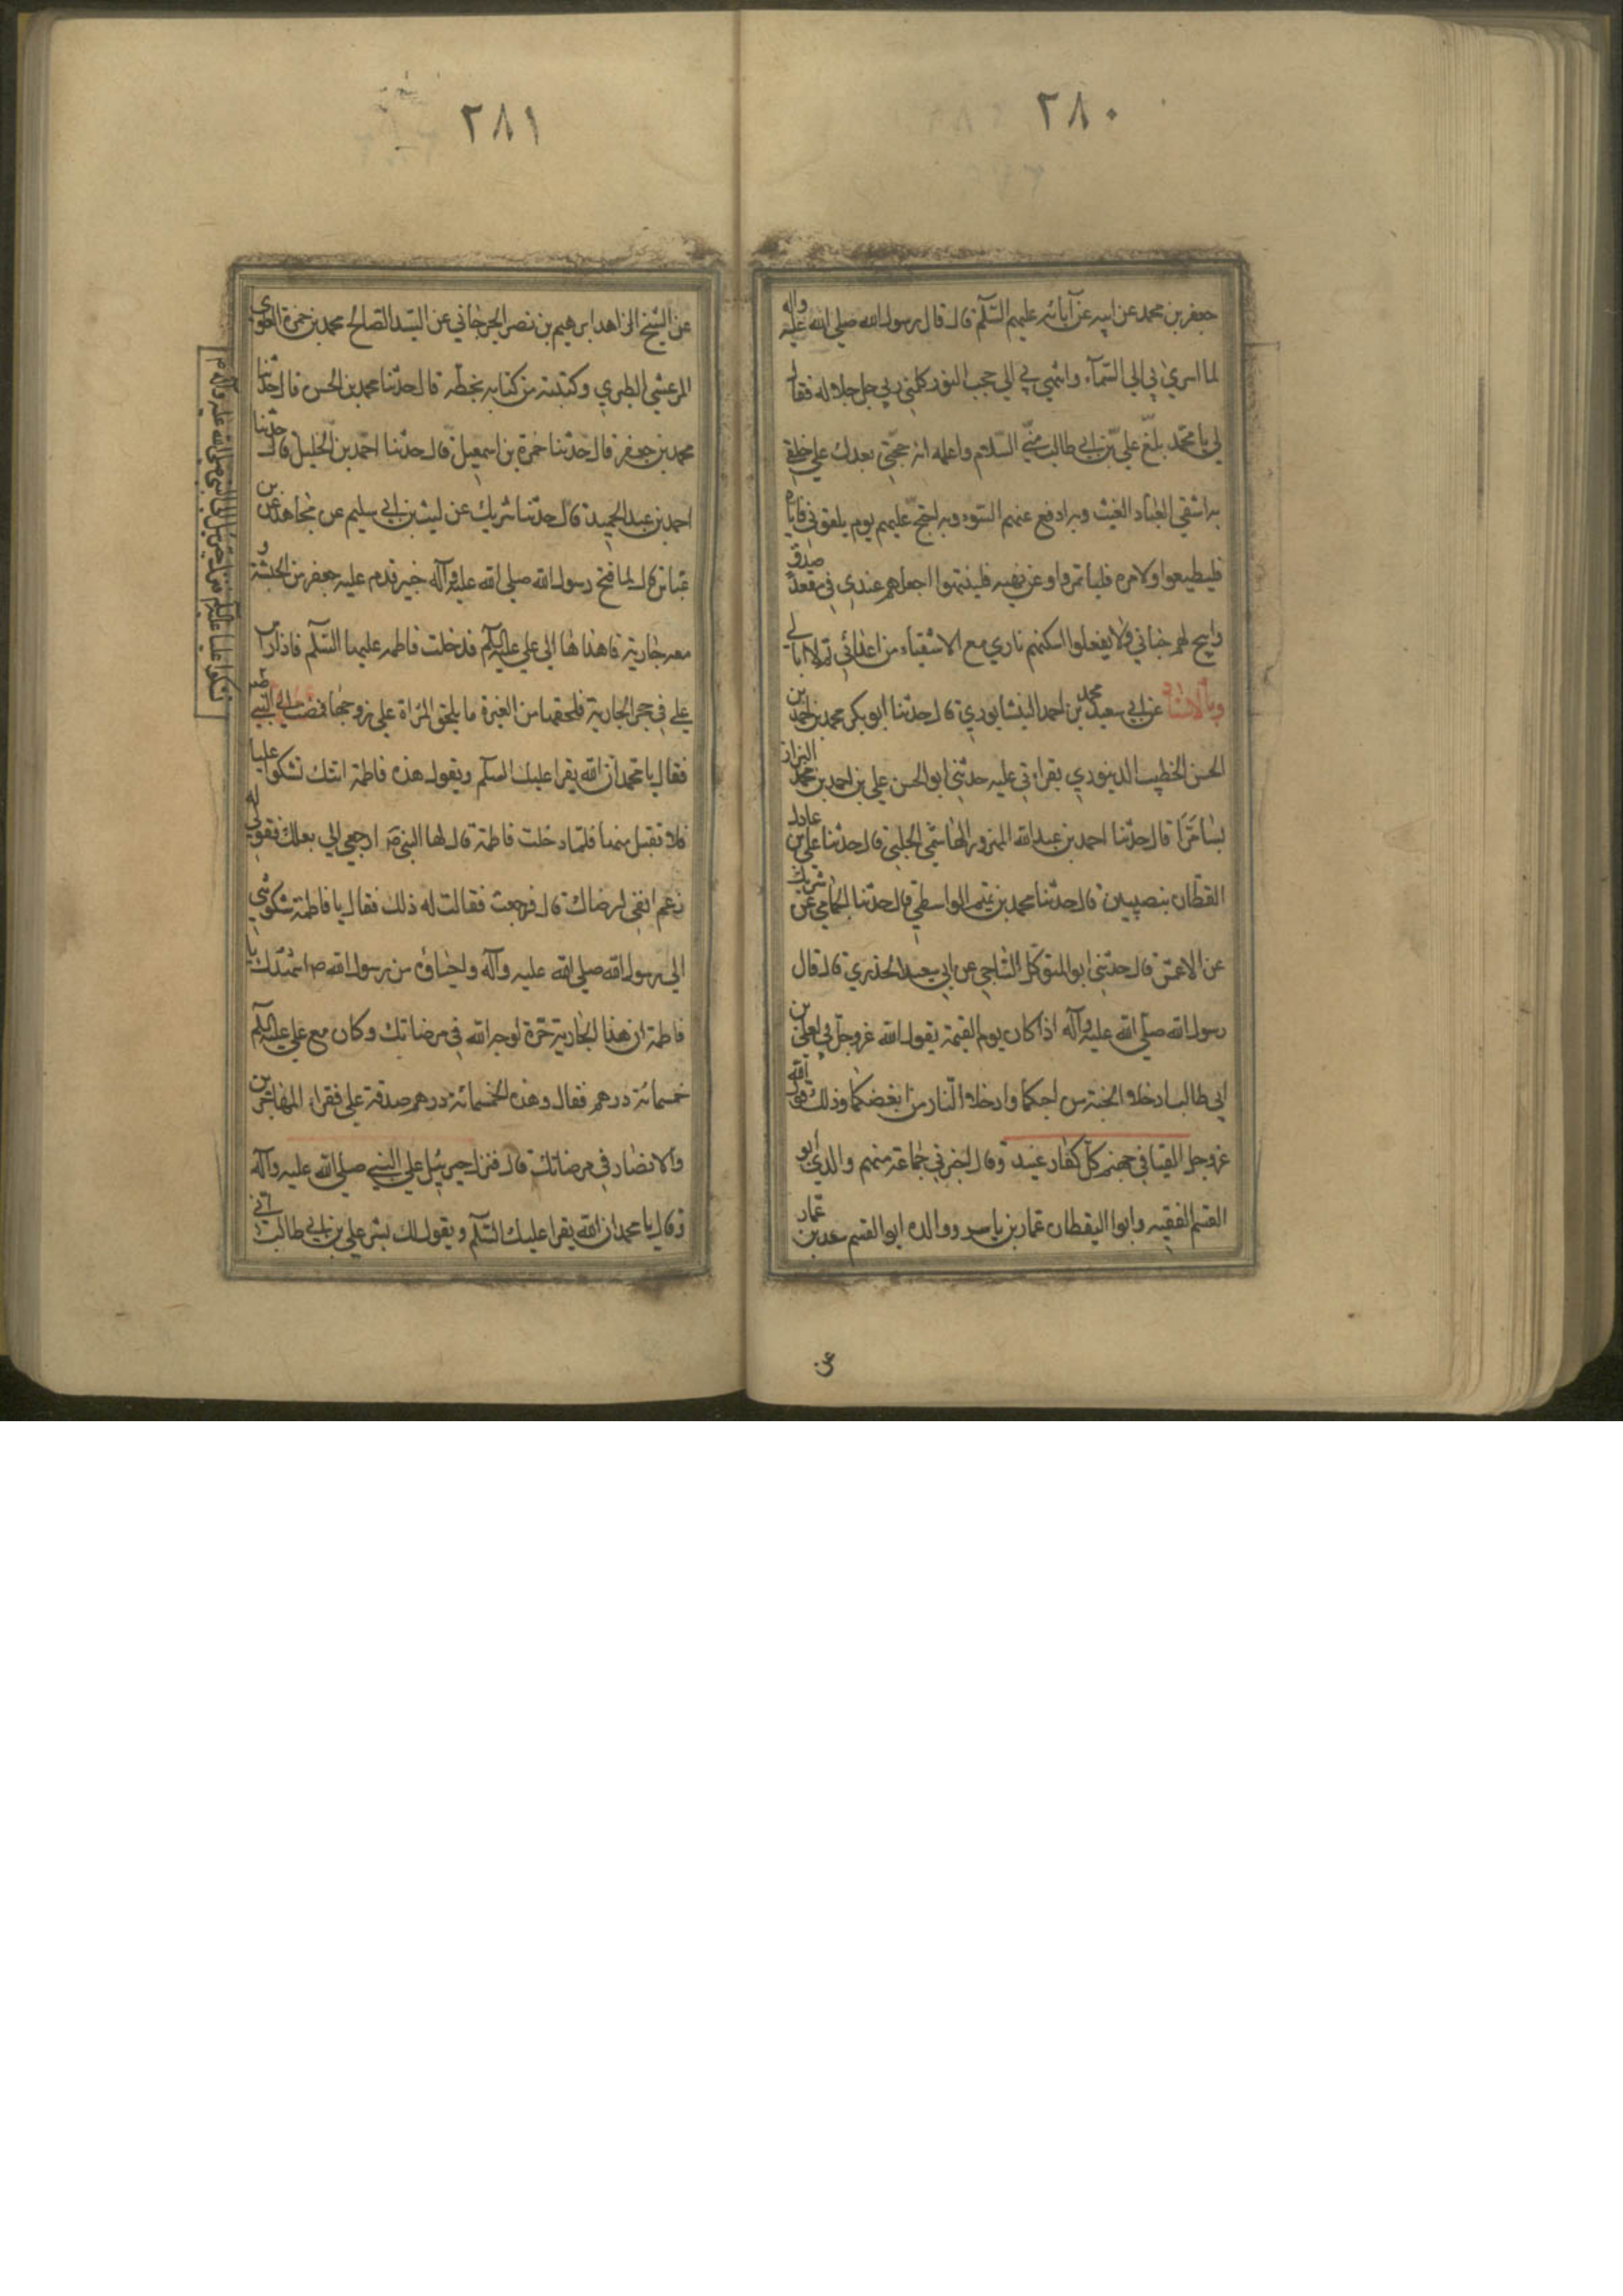 ٢٨٠
جعفر بن محمد عن ابيه عن آبائه عليهم السّلم قال قال رسول الله صلى الله عليه واله
لما اسرى بي الى السّمآء وانتهى بي الى حجب النور كلمني ربي جل جلاله فقال
لي يا محمد بلّغ علي بن ابي طالب منّي السّلام واعلمه انه حجّتي بعدك على خلقي
به اسقي العباد الغيث وبه ادفع عنهم السّوء وبه احتج عليهم يوم يلقوني فاياه
فليطيعوا ولامره فلياتمروا وعن نهيه فلينتهوا اجعلهم عندي في مقعد صدق
وابيح لهم جناني وان لا يفعلوا اسكنهم ناري مع الاشقياء من اعدائي ثم لا ابالي
وبالاسناد عن ابي سعيد محمد بن احمد النيشابوري قال حدثنا ابو بكر محمد بن احمد بن
الحسن الخطيب الدينوري بقراءتي عليه حدثني ابو الحسن علي بن احمد بن محمد البزاز
بسامرّا قال حدّثنا احمد بن عبد الله الهاشمي الحلبي قال حدثنا علي بن عادل
القطّان بنصيبين قال حدّثنا محمد بن تميم الواسطي قال حدّثنا الحماني عن شريك
عن الاعمش قال حدّثني ابو المتوكّل الناجي عن ابي سعيد الخدري قال قال
رسول الله صلّى الله عليه وآله اذا كان يوم القيمة يقول الله عز وجل لي ولعلي بن
ابي طالب ادخلا الجنة من احبكما وادخلا النّار من ابغضكما وذلك قول الله
عز وجل القيا في جهنم كلّ كفّار عنيد وقال اخبرني جماعة منهم والدي ابو
القسم الفقيه وابو اليقظان عمّار بن ياسر وولده ابو القسم سعد بن عمّار
عن
٢٨١
عن الشيخ الزاهد ابرهيم بن نصر الجرجاني عن السّيد الصّالح محمد بن حمزة العلوي
المرعشي الطبري وكتبته من كتابه بخطّه قال حدّثنا محمد بن الحسن قال حدّثنا
محمد بن جعفر قال حدّثنا حمزة بن اسمعيل قال حدثنا احمد بن الخليل قال حدّثنا
احمد بن عبد الحميد قال حدّثنا شريك عن ليث بن ابي سليم عن مجاهد عن بن
عبّاس قال لما فتح رسول الله صلى الله عليه وآله خيبر قدم عليه جعفر من الحبشة و
معه جارية فاهداها الى علي عليه السلم فدخلت فاطمه عليها السّلم فاذا رأس
علي في حجر الجارية فلحقها من الغيرة ما يلحق المراة على زوجها فمضت الى النبي
فقال يا محمد ان الله يقرا عليك السلم ويقول هذه فاطمة اتتك تشكو عليا
فلا تقبل منها فلمّا دخلت فاطمة قال لها النبي ص ارجعي الى بعلك فقولي له
رغم انفي لرضاك قال فرجعت فقالت له ذلك فقال يا فاطمة شكوتني
الى رسول الله صلى الله عليه وآله واحياؤه من رسول الله ص اشهدك يا
فاطمة ان هذا الجارية حرّة لوجه الله في مرضاتك وكان مع علي عليه السلم
خمسمائة درهم فقال وهذه الخمسمائة درهم صدقة على فقراء المهاجرين
والانصار في مرضاتك قال فنزل جبرئيل على النبي صلى الله عليه وآله
وقال يا محمد ان الله يقرا عليك السّلم ويقول لك بشر علي بن ابي طالب
تشكوا عليا عليه السلم